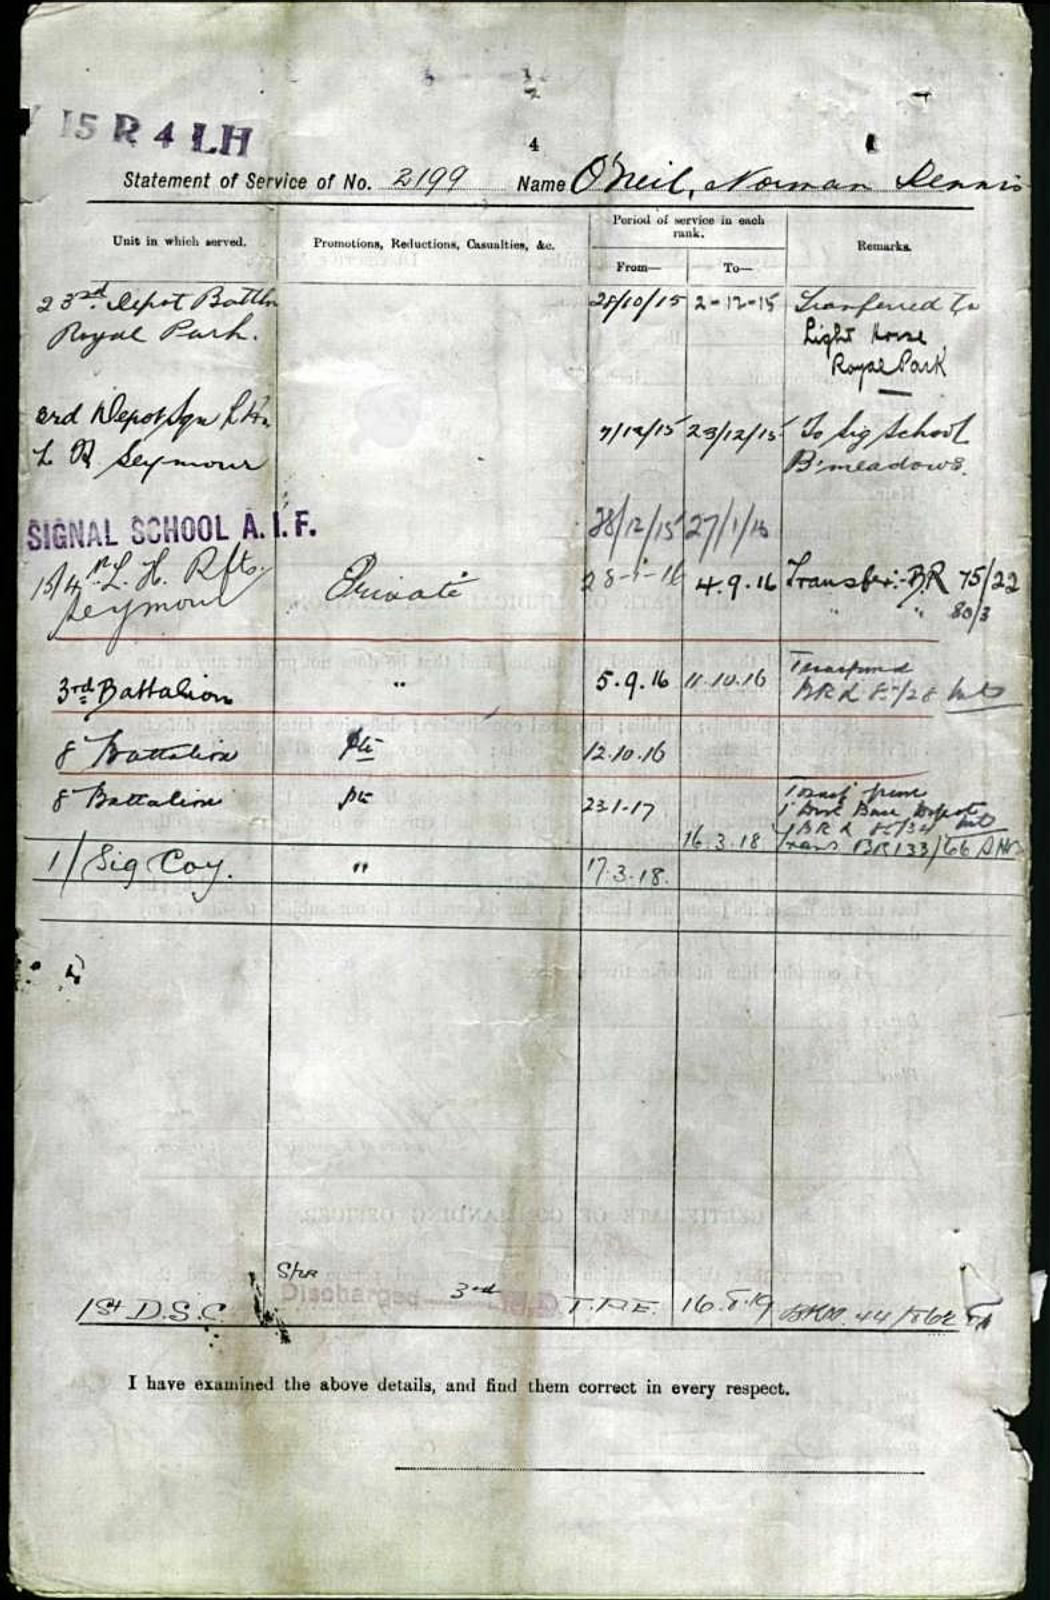 15 R 4 LH
4
Statement of Service of No. 2199 Name O'Neil, Norman Dennis
Unit in which served. Promotions, Reductions, Casualties, &c. Period of service in each rank. Remarks.
From— To—
23rd Depot Battln 28/10/15 2-12-15 Transferred to
Royal Park. Light Horse
Royal Park
3rd Depot Sqn L.H. 7/12/15 23/12/15 To Sig School
Seymour B'meadows.
SIGNAL SCHOOL A.I.F. 28/12/15 27/1/16
15/4th L. H. Rfts. Private 28-1-16 4.9.16 Transfer: BR 75/22
Seymour " " 80/3
3rd Battalion " 5.9.16 11.10.16 Transferred
BRL 85/28
8 Battalion Pte 12.10.16
8 Battalion Pte 23.1.17 Transf from
1 Divl Base Depot
BRL 85/34
16.3.18 Trans BR133/66
1/ Sig Coy. " 17.3.18.
Spr
1st D.S.C. Discharged 3rd M.D. T.P.E. 16.8.19 44/862
I have examined the above details, and find them correct in every respect.